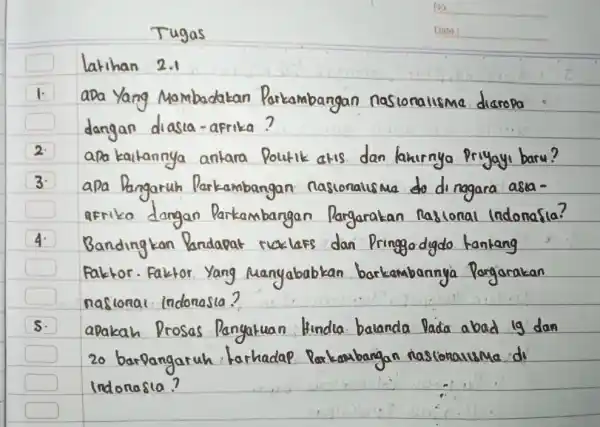 No
Class:
Tugas
latihan 2.1
1. apa Yang Mambadakan Parkambangan nasionalisma diaropa
dangan diasia-aFrika ?
2. apa kaitannya antara Politik atis dan lahirnya Priyayi baru?
3. apa Pangaruh Parkambangan nasionalisma do di nagara asia-
aFrika dangan Parkambangan Pargarakan nasional Indonasia?
4. Bandingkan Pandapat ruklaFs dan Pringgodigdo tantang
Faktor-Faktor Yang Manyababkan barkambannya Pargarakan
nasional Indonasia?
5. apakah Prosas Panyatuan Hindia balanda Pada abad 19 dan
20 barPangaruh tarhadap Parkambangan nasionalisma di
Indonasia?